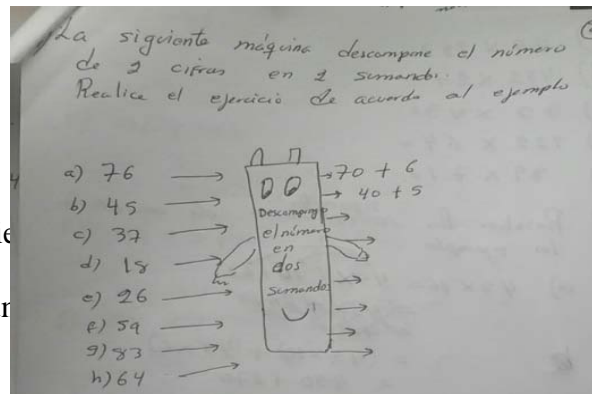 La siguiente máquina descompone el número
de 2 cifras en 2 sumandos.
Realice el ejercicio de acuerdo al ejemplo
a) 76
b) 45
c) 37
d) 18
e) 26
f) 59
g) 83
h) 64
Descompongo
el número
en
dos
sumandos
70 + 6
40 + 5